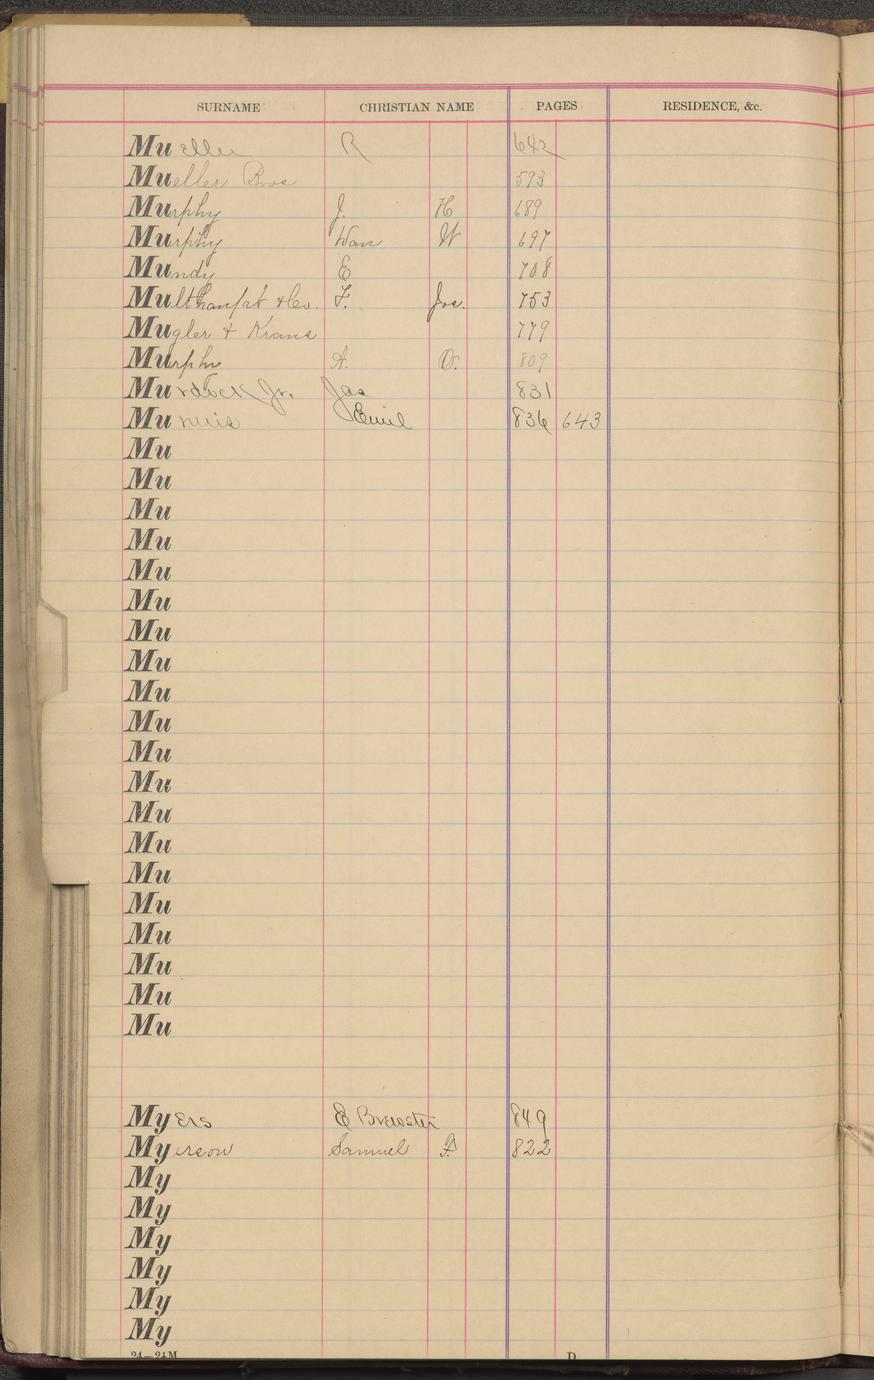 SURNAME CHRISTIAN NAME PAGES RESIDENCE, &c.
Mueller R 642
Mueller Bros 593
Murphy J. H 689
Murphy W 697
Mundy E 708
Multhaupt & Co. F. Jos. 753
Mugler & Krans 779
Murphy A. O. 809
Murdock Jr. Jas 831
Mu Emil 836 643
Mu
Mu
Mu
Mu
Mu
Mu
Mu
Mu
Mu
Mu
Mu
Mu
Mu
Mu
Mu
Mu
Mu
Mu
Mu
Mu
Myers E Brewster 849
Myerson Samuel 822
My
My
My
My
My
My
24—24M D